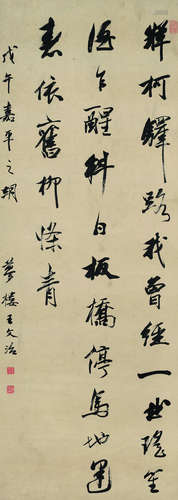 牂柯驛路我曾經一枕瑤笙
酒乍醒斜日板橋停馬地
春依舊柳條青
戊午嘉平之朔 夢樓王文治